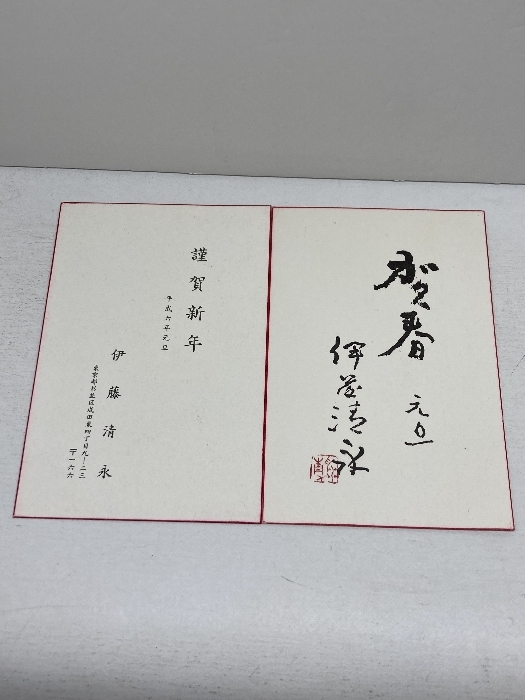 賀春
元旦
伊藤清永
謹賀新年
平成六年元旦
伊藤清永
東京都杉並区成田東四丁目九ー二三
〒一六六